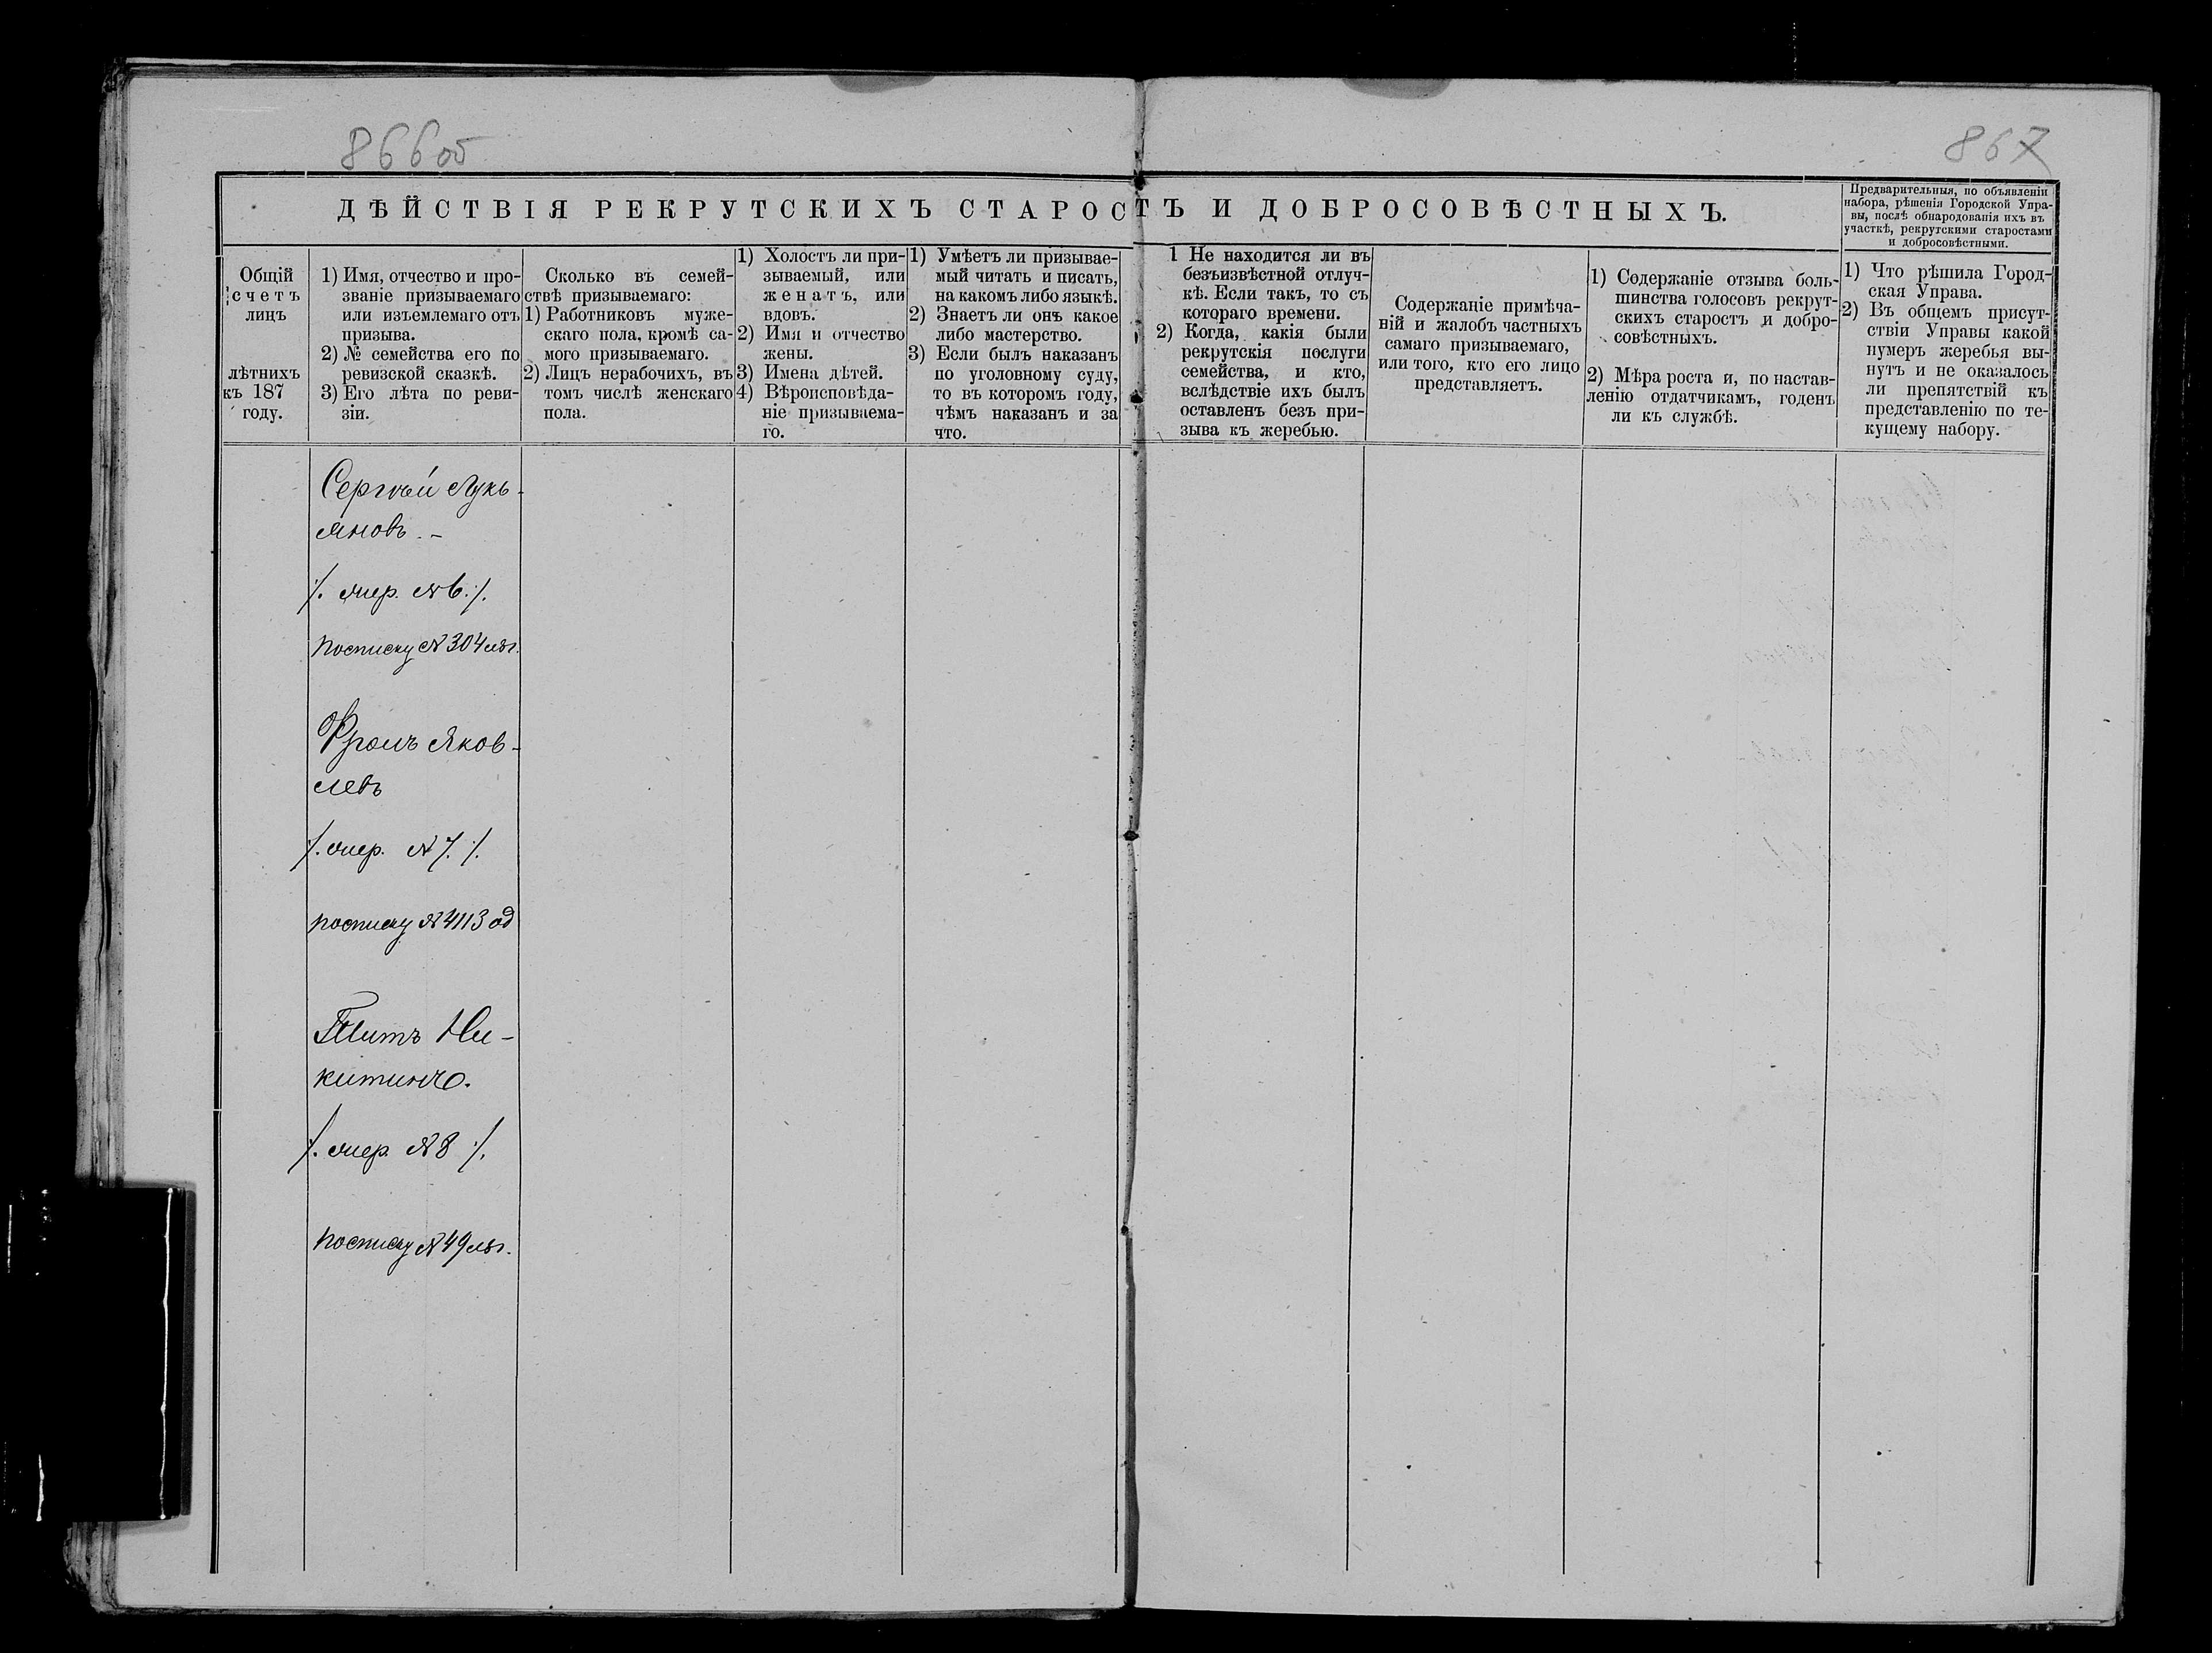 866об
867
ДѢЙСТВІЯ РЕКРУТСКИХЪ СТАРОСТЪ И ДОБРОСОВѢСТНЫХЪ.
Предварительныя, по объявленіи
набора, рѣшенія Городской Упра-
вы, послѣ обнародованія ихъ въ
участкѣ, рекрутскими старостами
и добросовѣстными.
Общій
счетъ
лицъ
лѣтнихъ
къ 187
году.
1) Имя, отчество и про-
званіе призываемаго
или изъемлемаго отъ
призыва.
2) № семейства его по
ревизской сказкѣ.
3) Его лѣта по реви-
зіи.
Сколько въ семей-
ствѣ призываемаго:
1) Работниковъ муже-
скаго пола, кромѣ са-
мого призываемаго.
2) Лицъ нерабочихъ, въ
томъ числѣ женскаго
пола.
1) Холостъ ли при-
зываемый, или
женатъ, или
вдовъ.
2) Имя и отчество
жены.
3) Имена дѣтей.
4) Вѣроисповѣда-
ніе призываема-
го.
1) Умѣетъ ли призывае-
мый читать и писать,
на какомъ либо языкѣ.
2) Знаетъ ли онъ какое
либо мастерство.
3) Если былъ наказанъ
по уголовному суду,
то въ которомъ году,
чѣмъ наказанъ и за
что.
1 Не находится ли въ
безъизвѣстной отлуч-
кѣ. Если такъ, то съ
котораго времени.
2) Когда, какія были
рекрутскія послуги
семейства, и кто,
вслѣдствіе ихъ былъ
оставленъ безъ при-
зыва къ жеребью.
Содержаніе примѣча-
ній и жалобъ частныхъ
самаго призываемаго,
или того, кто его лицо
представляетъ.
1) Содержаніе отзыва боль-
шинства голосовъ рекрут-
скихъ старостъ и добро-
совѣстныхъ.
2) Мѣра роста и, по настав-
ленію отдатчикамъ, годенъ
ли къ службѣ.
1) Что рѣшила Город-
ская Управа.
2) Въ общемъ присут-
ствіи Управы какой
нумеръ жеребья вы-
нутъ и не оказалось
ли препятствій къ
представленію по те-
кущему набору.
Сергѣй Лукь-
яновъ. -
/. жер. № 6. /.
по списку № 304 льг.
Фролъ Яков-
левъ
/. жер. № 7. /.
по списку № 4113 од
Титъ Ни-
китинъ.
/. жер. № 8 /.
по списку № 49 льг.